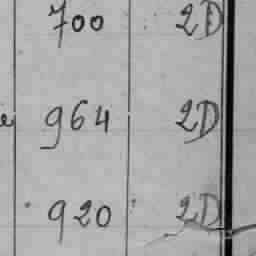 700 2D
964 2D
920 2D